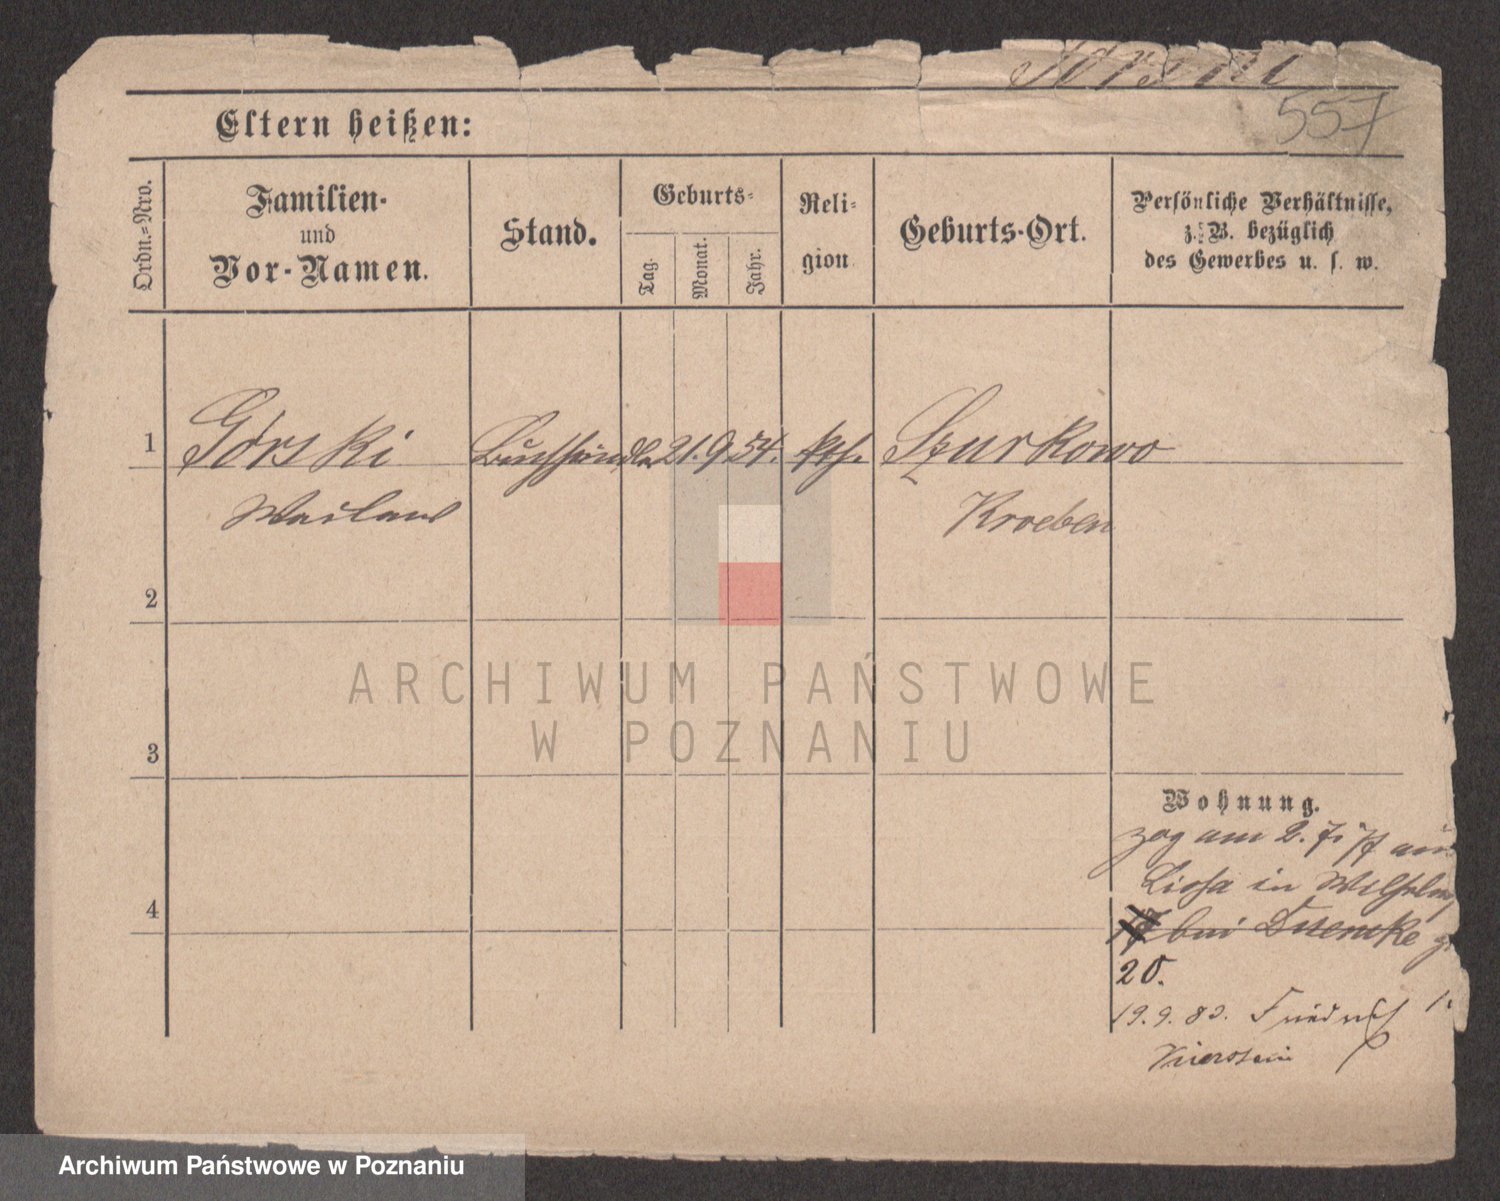 Górski
557
Eltern heißen:
Ordn.-Nro.
Familien-
und
Vor-Namen.
Stand.
Geburts-
Tag.
Monat.
Jahr.
Reli-
gion
Geburts-Ort.
Persönliche Verhältnisse,
z. B. bezüglich
des Gewerbes u. s. w.
1
Górski
Buchhändler
21. 9. 54.
kth.
Szurkowo
Kroeben
2
3
4
ARCHIWUM PAŃSTWOWE
W POZNANIU
Wohnung.
zog am 2. 7
Lissa in Wilhelm
bei
20.
19. 9. 83. Friedrich
Archiwum Państwowe w Poznaniu